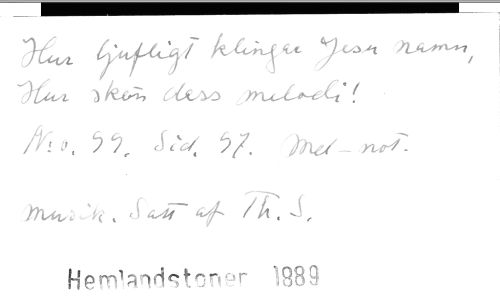 Hur ljufligt klingar Jesu namn,
Hur skön dess melodi!
N:o. 99. Sid. 97. Med-not.
Musik. Satt af Th. S.
Hemlandstoner 1889